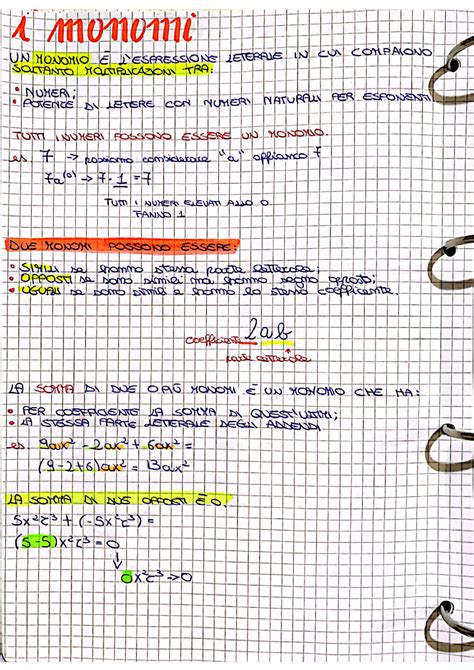 i monomi
UN MONOMIO È L'ESPRESSIONE LETERALE IN CUI COMPAIONO
SOLTANTO MOLTIPLICAZIONI TRA:
• NUMERI;
• POTENZE DI LETERE CON NUMERI NATURALI PER ESPONENTI.
TUTTI I NUMERI POSSONO ESSERE UN MONOMIO.
es. 7 → possiamo considerare "a" appiamo 7
7a⁽⁰⁾ → 7 · 1 = 7
TUTTI I NUMERI ELEVATI ALLO 0
FANNO 1
DUE MONOMI POSSONO ESSERE:
• SIMILI se hanno stessa parte letterale;
• OPPOSTI se sono simili ma hanno segno opposti;
• UGUALI se sono simili e hanno lo stesso coefficiente.
coefficiente 2ab
parte letterale
LA SOMMA DI DUE O PIÙ MONOMI È UN MONOMIO CHE HA:
• PER COEFFICIENTE LA SOMMA DI QUEST'ULTIMI;
• LA STESSA PARTE LETERALE DEGLI ADDENDI
es. 9ax² - 2ax² + 6ax² =
(9-2+6)ax² = 13ax²
LA SOMMA DI DUE OPPOSTI È 0.
5x²z³ + (-5x²z³) =
(5-5)x²z³ = 0
0x²z³ → 0